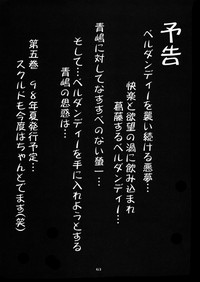 予告
ベルダンディーを襲い続ける悪夢…
快楽と欲望の渦に飲み込まれ
葛藤するベルダンディー…
青嶋に対してなすすべのない螢一…
そして…ベルダンディーを手に入れようとする
青嶋の思惑は…
第五巻 98年夏発行予定…
スクルドも今度はちゃんとでます(笑)